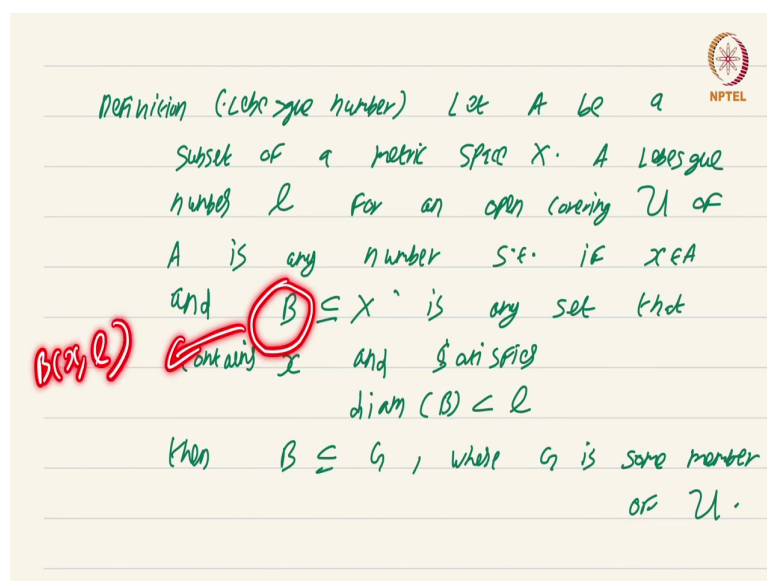 NPTEL
Definition (Lebesgue number) Let A be a
subset of a metric space X. A Lebesgue
number l for an open covering U of
A is any number s.t. if x ∈ A
and B ⊆ X is any set that
B(x, l) contains x and satisfies
diam (B) < l
then B ⊆ G, where G is some member
of U.